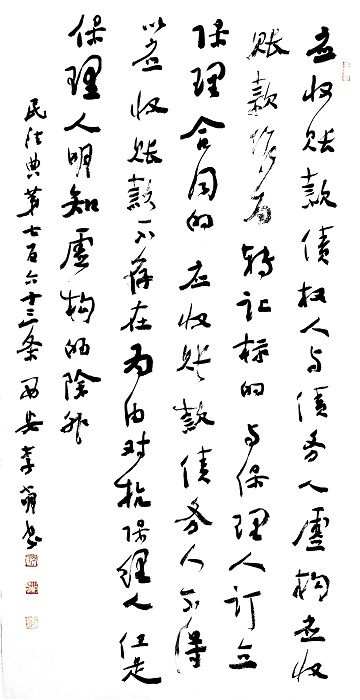 应收账款债权人与债务人虚构应收
账款作为转让标的与保理人订立
保理合同的应收账款债务人不得
以应收账款不存在为由对抗保理人但是
保理人明知虚构的除外
民法典第七百六十三条 西安李萌书